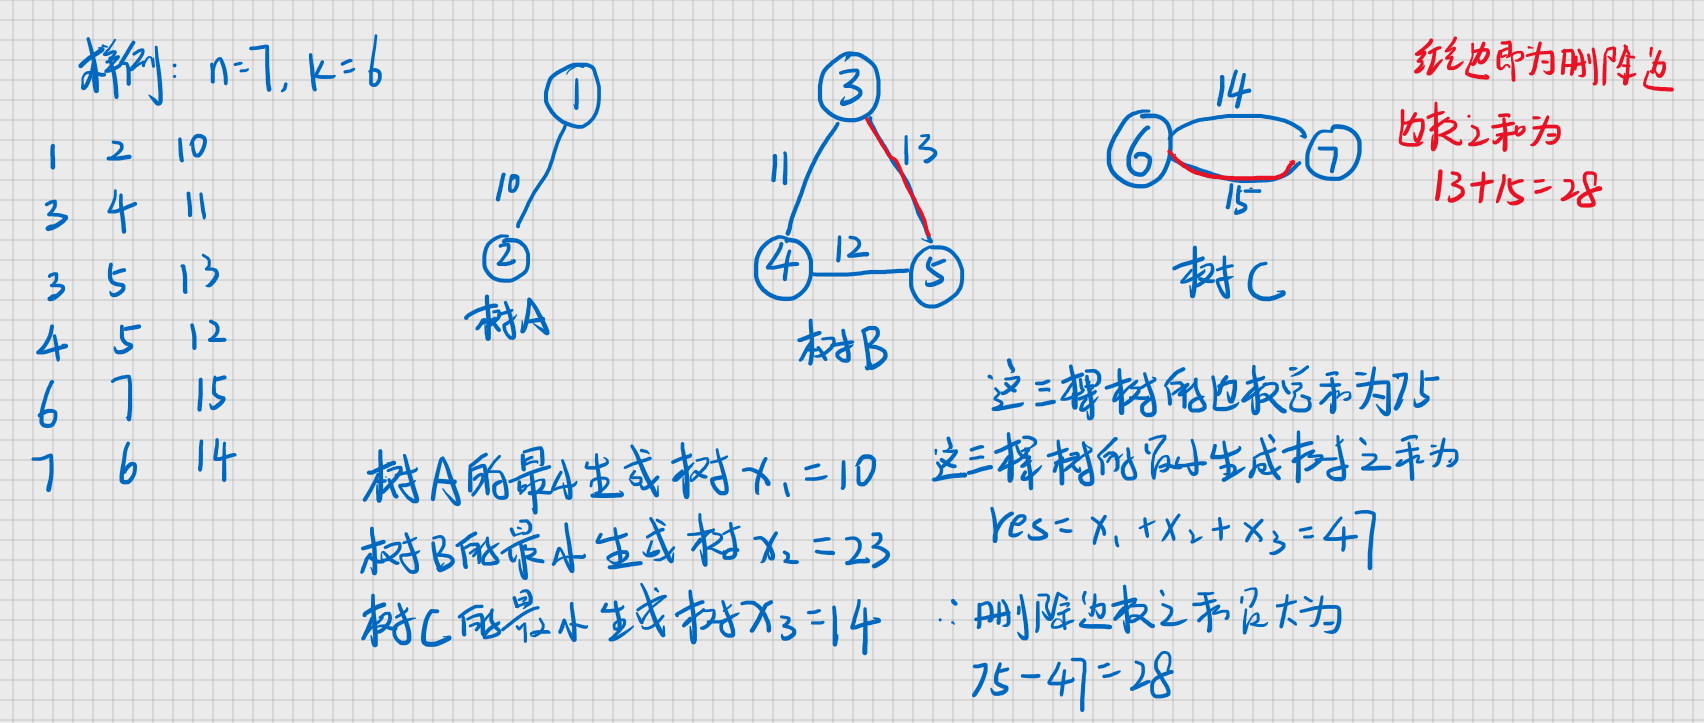 样例: n=7, k=6
1 2 10
3 4 11
3 5 13
4 5 12
6 7 15
7 6 14
1
10
2
树A
3
11
13
4
12
5
树B
14
6
7
15
树C
红边即为删除边
边权之和为
13+15=28
树A的最小生成树x₁=10
树B的最小生成树x₂=23
树C的最小生成树x₃=14
这三棵树的边权总和为75
这三棵树的最小生成树之和为
res=x₁+x₂+x₃=47
∴删除边权之和最大为
75-47=28